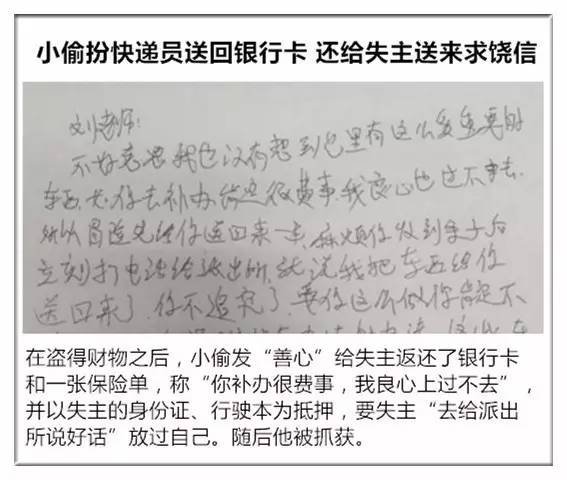 小偷扮快递员送回银行卡 还给失主送来求饶信
刘老师:
不好意思我也没有想到包里有这么多重要的
东西,你去补办肯定很费事,我良心也过不去,
所以冒险先给你送回来一半,麻烦你收到东西后
立刻打电话给派出所,就说我把东西给你
送回来了,你不追究了,要你这么做你肯定不
在盗得财物之后，小偷发“善心”给失主返还了银行卡
和一张保险单，称“你补办很费事，我良心上过不去”，
并以失主的身份证、行驶本为抵押，要失主“去给派出
所说好话”放过自己。随后他被抓获。